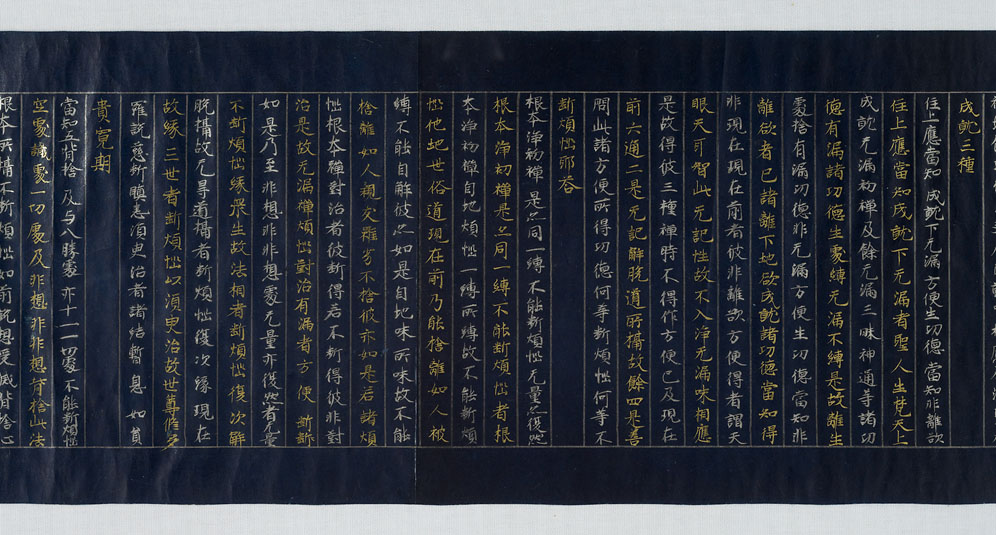 成就三種
住上應當知 成就下无漏 方便生功德 當知非離欲
住上應當知成就下无漏者聖人生梵天上
成就无漏初禪及餘无漏三昧神通等諸功
德有漏諸功德生處縛无漏不縛是故離生
處捨有漏功德非无漏方便生功德當知非
離欲者已諸離下地欲成就諸功德當知得
非現在現在前者彼非離欲方便得者謂天
眼天耳智此无記性故不入淨无漏味相應
是故得彼三種禪時不得作方便已及現在
前六通二是无記解脫道所攝故餘四是善
問此諸方便所得功德何等斷煩惱何等不
斷煩惱耶答
根本淨初禪 是亦同一縛 不能斷煩惱 无量亦復然
根本淨初禪是亦同一縛不能斷煩惱者根
本淨初禪自地煩惱一縛所縛故不能斷煩
惱他地世俗道現在前乃能捨離如人被
縛不能自解彼亦如是自地味所味故不能
捨離如人親突羅芳不捨彼亦如是若諸煩
惱根本禪對治者彼斷得若不斷得彼非對
治是故无漏禪煩惱對治有漏者方便斷訴
如是乃至非想非非想處无量亦復然者无量
不斷煩惱緣眾生故法相者斷煩惱復次解
脫攝故无旱道攝者斷煩惱復次緣現在
故緣三世者斷煩惱以須臾治故世尊作多
羅說慈斷瞋恚須臾治者諸結暫息 如貧
貴寬期
當知五背捨 及与八勝處 亦十一一切處 不能斷煩惱
空處識處一切處及非想非非想背捨此法
根本所攝不斷煩惱如前說想受滅背捨心